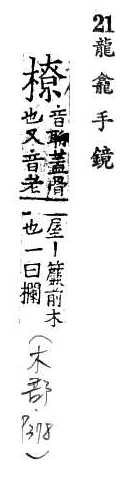 21龍龕手鏡
橑音聊蓋骨
也又音老
屋丨簷前木
也一曰欄
(木部·P378)